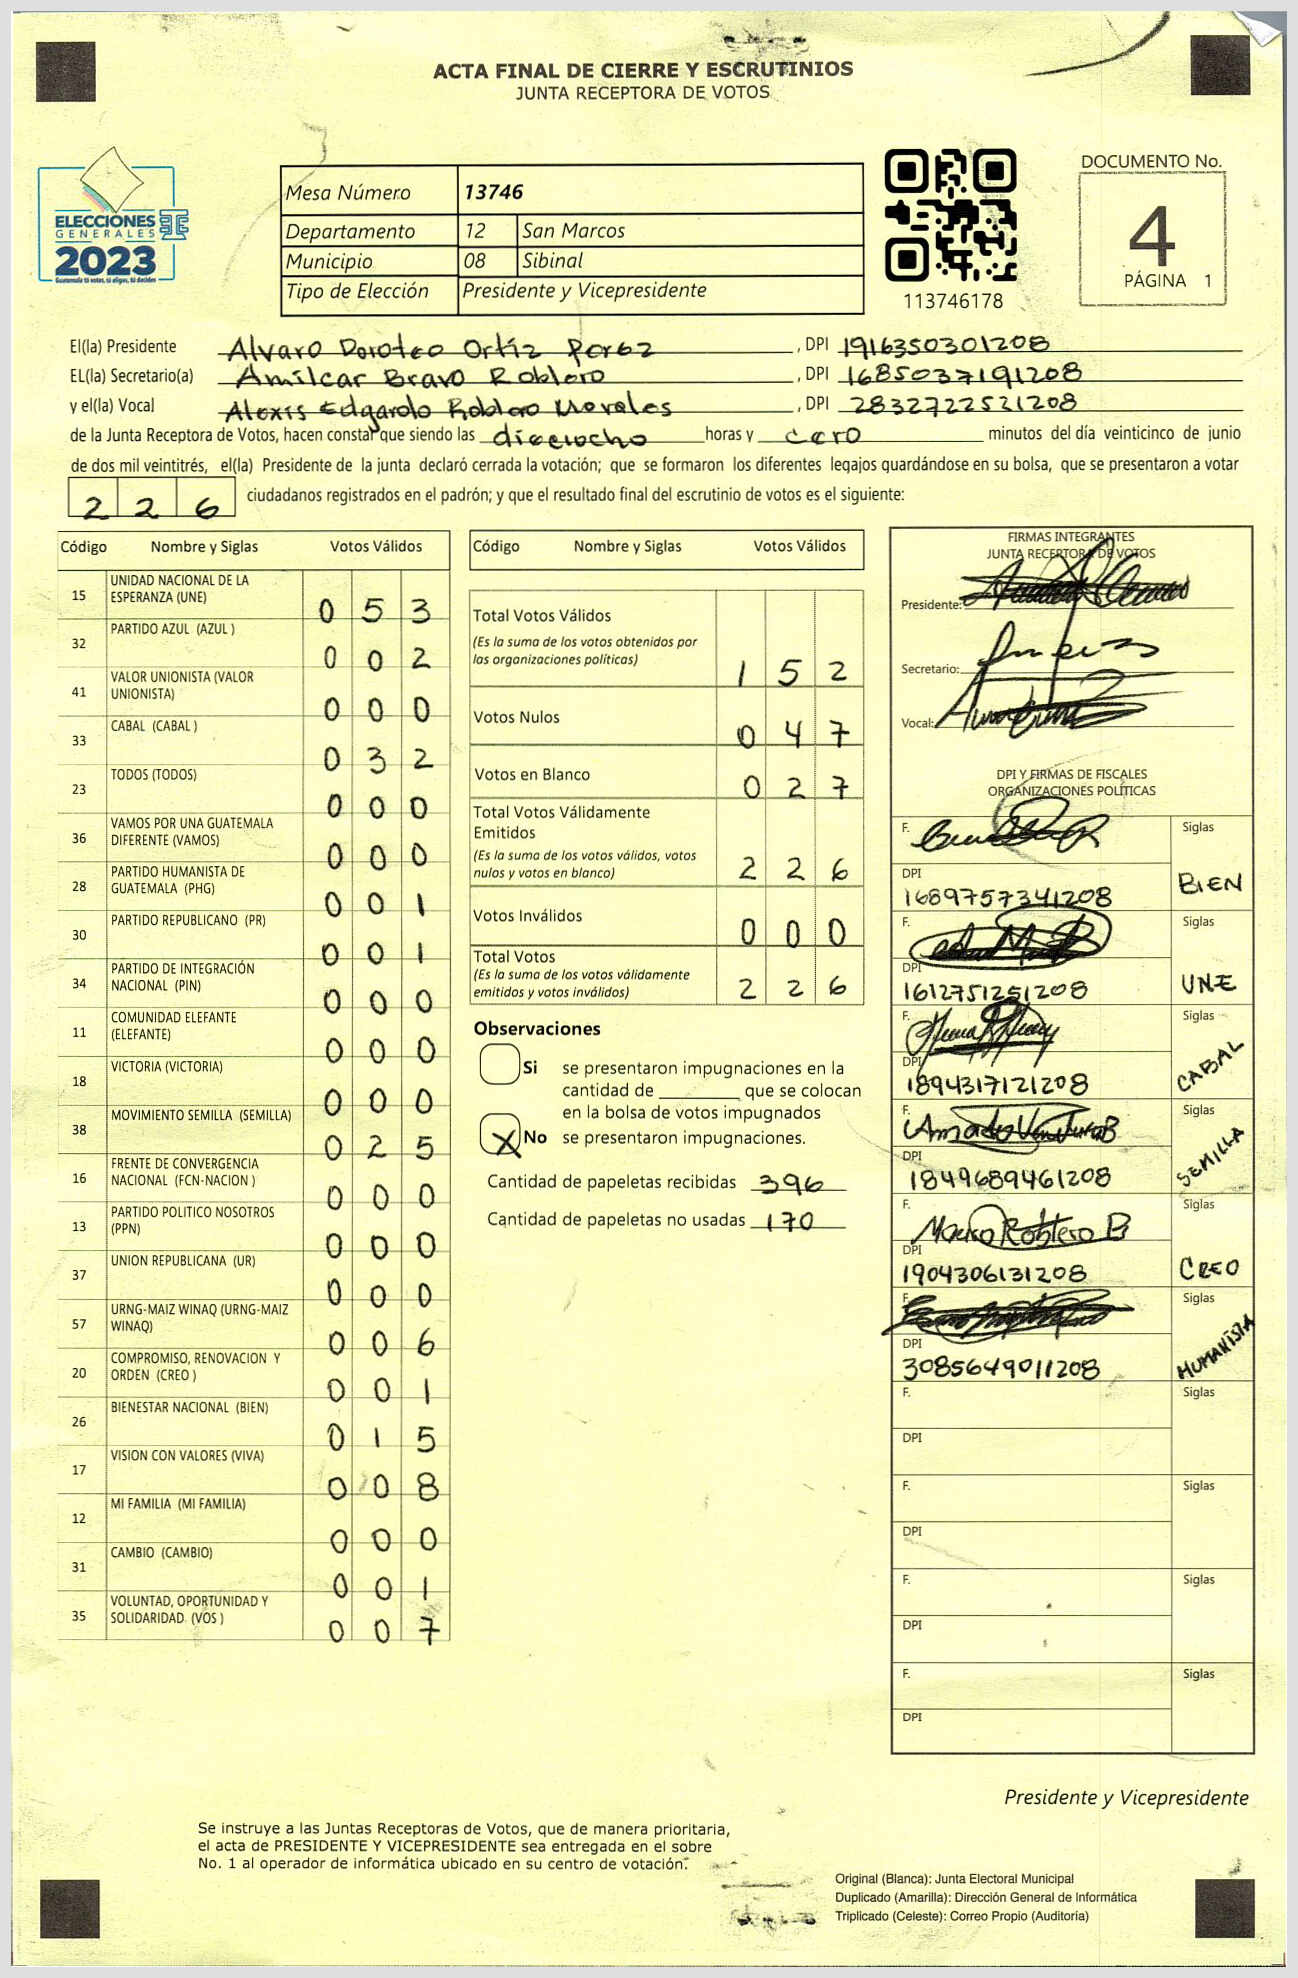 ACTA FINAL DE CIERRE Y ESCRUTINIOS
JUNTA RECEPTORA DE VOTOS
ELECCIONES
GENERALES
2023
Guatemala tú votas, tú eliges, tú decides
Mesa Número 13746
Departamento 12 San Marcos
Municipio 08 Sibinal
Tipo de Elección Presidente y Vicepresidente
113746178
DOCUMENTO No.
4
PÁGINA 1
El(la) Presidente Alvaro Doroteo Ortiz Perez , DPI 1916350301208
EL(la) Secretario(a) Amilcar Bravo Roblero , DPI 1685037191208
y el(la) Vocal Alexis Edgardo Roblero Morales , DPI 2832722521208
de la Junta Receptora de Votos, hacen constar que siendo las dieciocho horas y cero minutos del día veinticinco de junio
de dos mil veintitrés, el(la) Presidente de la junta declaró cerrada la votación; que se formaron los diferentes legajos guardándose en su bolsa, que se presentaron a votar
2 2 6 ciudadanos registrados en el padrón; y que el resultado final del escrutinio de votos es el siguiente:
Código Nombre y Siglas Votos Válidos
15 UNIDAD NACIONAL DE LA ESPERANZA (UNE) 0 5 3
32 PARTIDO AZUL (AZUL ) 0 0 2
41 VALOR UNIONISTA (VALOR UNIONISTA) 0 0 0
33 CABAL (CABAL ) 0 3 2
23 TODOS (TODOS) 0 0 0
36 VAMOS POR UNA GUATEMALA DIFERENTE (VAMOS) 0 0 0
28 PARTIDO HUMANISTA DE GUATEMALA (PHG) 0 0 1
30 PARTIDO REPUBLICANO (PR) 0 0 1
34 PARTIDO DE INTEGRACIÓN NACIONAL (PIN) 0 0 0
11 COMUNIDAD ELEFANTE (ELEFANTE) 0 0 0
18 VICTORIA (VICTORIA) 0 0 0
38 MOVIMIENTO SEMILLA (SEMILLA) 0 2 5
16 FRENTE DE CONVERGENCIA NACIONAL (FCN-NACION ) 0 0 0
13 PARTIDO POLITICO NOSOTROS (PPN) 0 0 0
37 UNION REPUBLICANA (UR) 0 0 0
57 URNG-MAIZ WINAQ (URNG-MAIZ WINAQ) 0 0 6
20 COMPROMISO, RENOVACION Y ORDEN (CREO ) 0 0 1
26 BIENESTAR NACIONAL (BIEN) 0 1 5
17 VISION CON VALORES (VIVA) 0 0 8
12 MI FAMILIA (MI FAMILIA) 0 0 0
31 CAMBIO (CAMBIO) 0 0 1
35 VOLUNTAD, OPORTUNIDAD Y SOLIDARIDAD (VOS ) 0 0 7
Código Nombre y Siglas Votos Válidos
Total Votos Válidos
(Es la suma de los votos obtenidos por
las organizaciones políticas) 1 5 2
Votos Nulos 0 4 7
Votos en Blanco 0 2 7
Total Votos Válidamente
Emitidos
(Es la suma de los votos válidos, votos
nulos y votos en blanco) 2 2 6
Votos Inválidos 0 0 0
Total Votos
(Es la suma de los votos válidamente
emitidos y votos inválidos) 2 2 6
Observaciones
Si se presentaron impugnaciones en la
cantidad de ________ que se colocan
en la bolsa de votos impugnados
X No se presentaron impugnaciones.
Cantidad de papeletas recibidas 396
Cantidad de papeletas no usadas 170
FIRMAS INTEGRANTES
JUNTA RECEPTORA DE VOTOS
Presidente:
Secretario:
Vocal:
DPI Y FIRMAS DE FISCALES
ORGANIZACIONES POLÍTICAS
F. Siglas
DPI
1689757341208 BIEN
F. Siglas
DPI
1612751251208 UNE
F. Siglas
DPI
1894317121208 CABAL
F. Amado Ventura B Siglas
DPI
1849689461208 SEMILLA
F. Marco Roblero B Siglas
DPI
1904306131208 CREO
F. Siglas
DPI
3085649011208 HUMANISTA
F. Siglas
DPI
F. Siglas
DPI
F. Siglas
DPI
F. Siglas
DPI
Presidente y Vicepresidente
Se instruye a las Juntas Receptoras de Votos, que de manera prioritaria,
el acta de PRESIDENTE Y VICEPRESIDENTE sea entregada en el sobre
No. 1 al operador de informática ubicado en su centro de votación.
Original (Blanca): Junta Electoral Municipal
Duplicado (Amarilla): Dirección General de Informática
Triplicado (Celeste): Correo Propio (Auditoría)